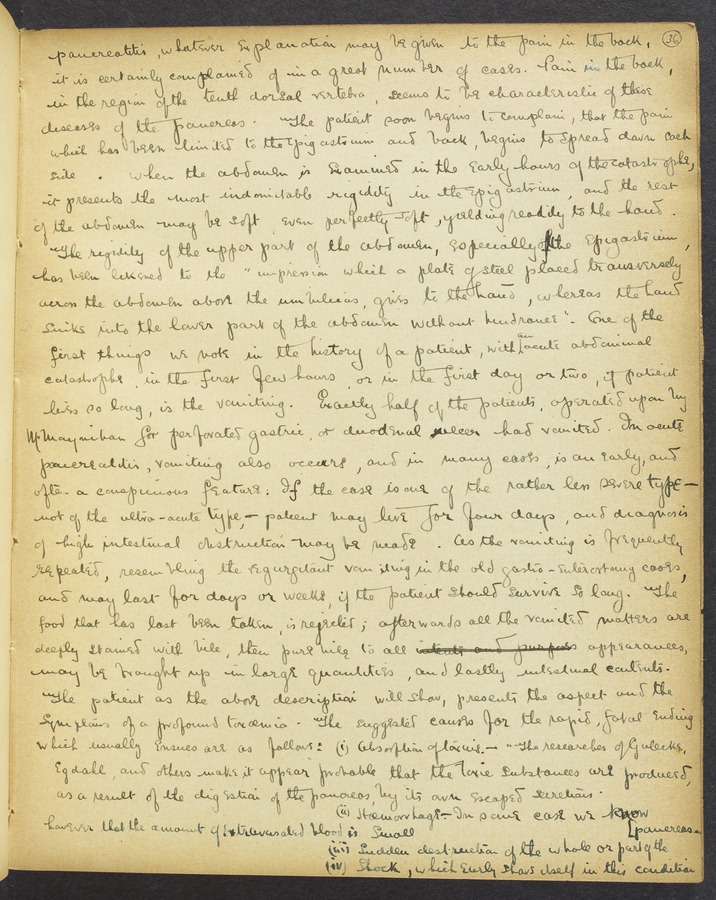 36
pancreatitis, whatever explanation may be given to the pain in the back,
it is certainly complained of in a great number of cases. Pain in the back,
in the region of the tenth dorsal vertebra, seems to be characteristic of these
diseases of the pancreas. The patient soon begins to complain, that the pain
which has been limited to the Epigastrium and back, begins to spread down each
side. When the abdomen is Examined in the Early hours of the catastrophe,
it presents the most indomitable rigidity in the Epigastrium, and the rest
of the abdomen may be soft, even perfectly soft, yielding readily to the hand.
"The rigidity of the upper part of the abdomen, Especially of the Epigastrium,
has been likened to the "impression which a plate of steel placed transversely
across the abdomen above the umbilicus, gives to the hand, whereas the hand
sinks into the lower part of the abdomen without hindrance". One of the
first things we note in the history of a patient, with an acute abdominal
catastrophe, in the first few hours, or in the first day or two, if patient
lives so long, is the vomiting. Exactly half of the patients, operated upon by
Mr Moynihan for perforated gastric, or duodenal ulcer had vomited. In acute
pancreatitis, vomiting also occurs, and in many cases, is an early, and
often a conspicuous feature: If the case is one of the rather less severe type -
not of the ultra-acute type, - patient may live for four days, and diagnosis
of high intestinal obstruction may be made. As the vomiting is frequently
repeated, resembling the regurgitant vomiting in the old gastro-Enterostomy cases,
and may last for days or weeks, if the patient should survive so long. The
food that has last been taken, is rejected; afterwards all the vomited matters are
deeply stained with bile, then pure bile to all intents and purposes appearances,
may be brought up in large quantities, and lastly intestinal contents.
The patient as the above description will show, presents the aspect and the
symptoms of a profound toxæmia. The suggested causes for the rapid, fatal Ending
which usually Ensues are as follows: (i) Absorption of toxins. - "The researches of Guleke,
Egdahl, and others make it appear probable that the toxic substances are produced,
as a result of the digestion of the pancreas, by its own escaped secretions.
(ii) Hæmorrhage - In some case we know
however that the amount of Extravasated blood is small [pancreas -
(iii) Sudden destruction of the whole or part of the
(iv) Shock, which Early shows itself in this condition